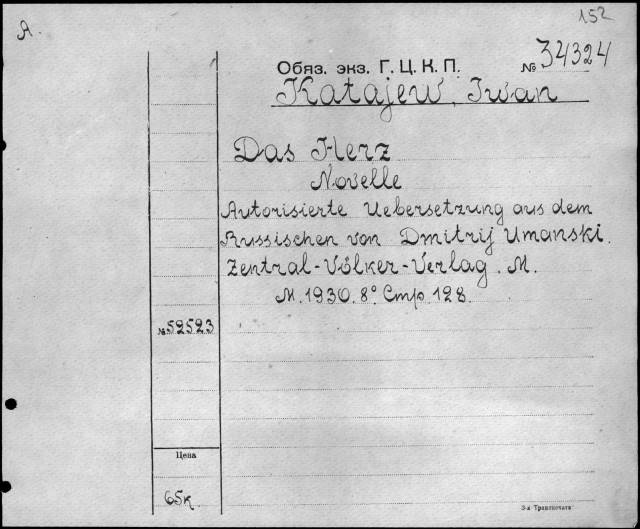 152
A.
Обяз. экз. Г. Ц. К. П. № 34324
Katajew, Iwan
Das Herz
Novelle
Autorisierte Uebersetzung aus dem
Russischen von Dmitrij Umanski.
Zentral-Völker-Verlag. M.
M. 1930. 8° Стр. 128.
№ 52523
Цена
65к.
3-я Транспечать